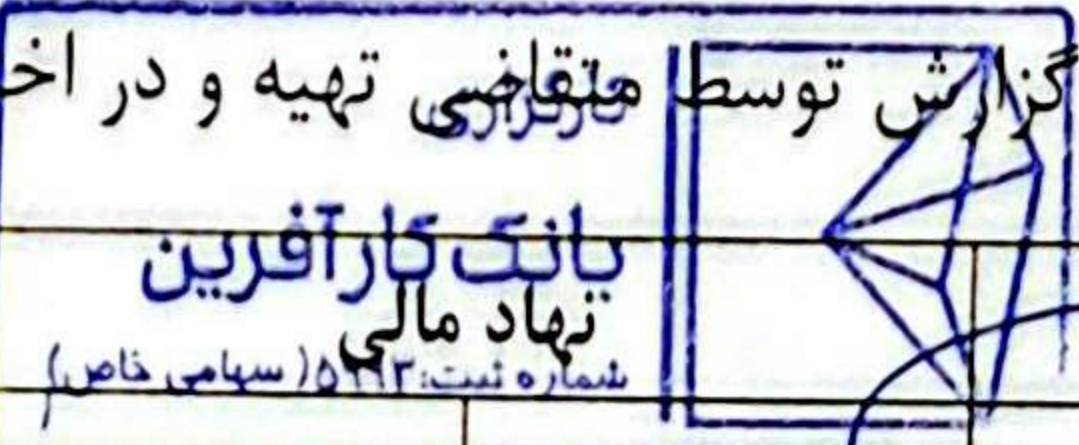 گزارش توسط متقاضی تهیه و در اخ
کارگزاری
بانک کارآفرین
نهاد مالی
شماره ثبت: (سهامی خاص)